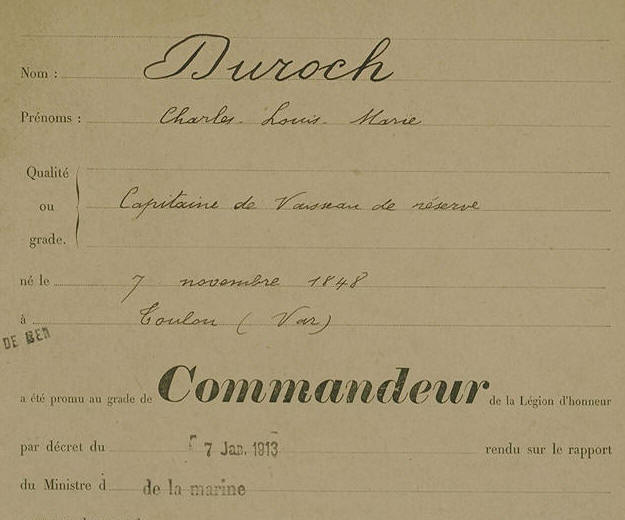 Nom : Duroch
Prénoms : Charles Louis Marie
Qualité
ou Capitaine de Vaisseau de réserve
grade.
né le 7 novembre 1848
à Toulon (Var)
DE
a été promu au grade de Commandeur de la Légion d'honneur
par décret du 7 Jan. 1913 rendu sur le rapport
du Ministre d de la marine